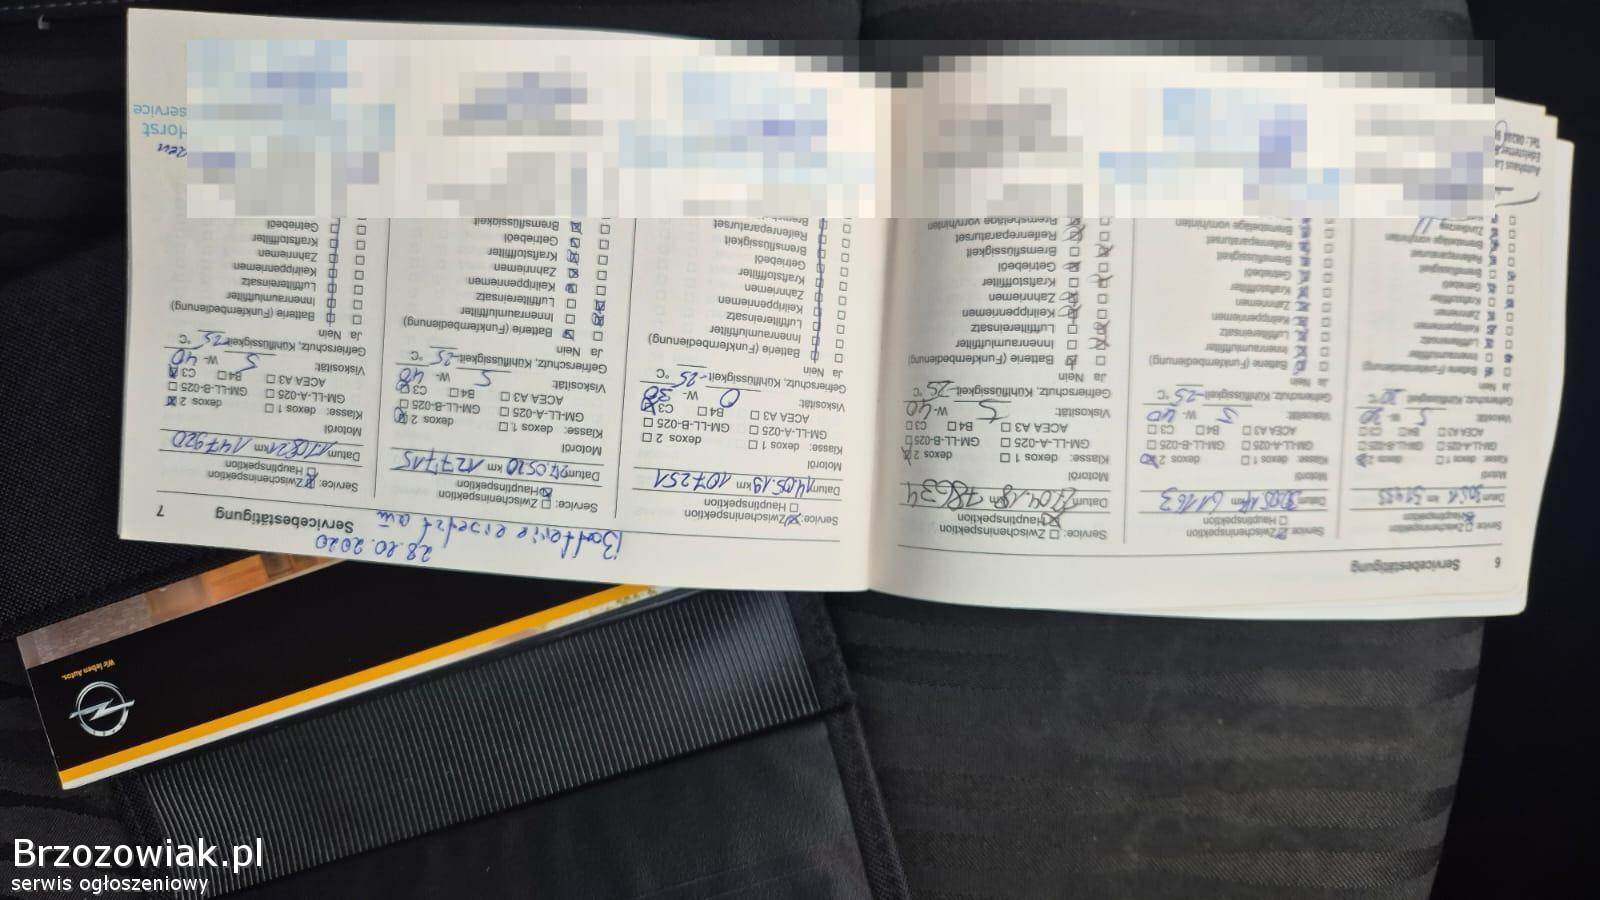 6 Servicebestätigung
Service: Zwischeninspektion
Hauptinspektion
Datum km 51433
Motoröl
Klasse: dexos 1 dexos 2
GM-LL-A-025 GM-LL-B-025
ACEA A3 B4 C3
Viskosität: 5 W- 30
Gefrierschutz, Kühlflüssigkeit °C
Ja Nein
Batterie (Funkfernbedienung)
Innenraumluftfilter
Luftfiltereinsatz
Keilrippenriemen
Zahnriemen
Kraftstofffilter
Getriebeöl
Bremsflüssigkeit
Reifenreparaturset
Bremsbeläge vorn/hinten
Zündkerzen
Service: Zwischeninspektion
Hauptinspektion
Datum km 61163
Motoröl
Klasse: dexos 1 dexos 2
GM-LL-A-025 GM-LL-B-025
ACEA A3 B4 C3
Viskosität: 5 W- 40
Gefrierschutz, Kühlflüssigkeit -25 °C
Ja Nein
Batterie (Funkfernbedienung)
Innenraumluftfilter
Luftfiltereinsatz
Keilrippenriemen
Zahnriemen
Kraftstofffilter
Getriebeöl
Bremsflüssigkeit
Reifenreparaturset
Bremsbeläge vorn/hinten
Service: Zwischeninspektion
Hauptinspektion
Datum 27.04.18 km 78634
Motoröl
Klasse: dexos 1 dexos 2
GM-LL-A-025 GM-LL-B-025
ACEA A3 B4 C3
Viskosität: 5 W- 40
Gefrierschutz, Kühlflüssigkeit -25 °C
Ja Nein
Batterie (Funkfernbedienung)
Innenraumluftfilter
Luftfiltereinsatz
Keilrippenriemen
Zahnriemen
Kraftstofffilter
Getriebeöl
Bremsflüssigkeit
Reifenreparaturset
Bremsbeläge vorn/hinten
Batterie ersetzt am
28.10.2020
Servicebestätigung 7
Service: Zwischeninspektion
Hauptinspektion
Datum 14.05.19 km 107251
Motoröl
Klasse: dexos 1 dexos 2
GM-LL-A-025 GM-LL-B-025
ACEA A3 B4 C3
Viskosität: 0 W- 30
Gefrierschutz, Kühlflüssigkeit -25 °C
Ja Nein
Batterie (Funkfernbedienung)
Innenraumluftfilter
Luftfiltereinsatz
Keilrippenriemen
Zahnriemen
Kraftstofffilter
Getriebeöl
Bremsflüssigkeit
Reifenreparaturset
Service: Zwischeninspektion
Hauptinspektion
Datum 27.05.20 km 127715
Motoröl
Klasse: dexos 1 dexos 2
GM-LL-A-025 GM-LL-B-025
ACEA A3 B4 C3
Viskosität: 5 W- 40
Gefrierschutz, Kühlflüssigkeit -25 °C
Ja Nein
Batterie (Funkfernbedienung)
Innenraumluftfilter
Luftfiltereinsatz
Keilrippenriemen
Zahnriemen
Kraftstofffilter
Getriebeöl
Bremsflüssigkeit
Service: Zwischeninspektion
Hauptinspektion
Datum km 147920
Motoröl
Klasse: dexos 1 dexos 2
GM-LL-A-025 GM-LL-B-025
ACEA A3 B4 C3
Viskosität: 5 W- 40
Gefrierschutz, Kühlflüssigkeit -25 °C
Ja Nein
Batterie (Funkfernbedienung)
Innenraumluftfilter
Luftfiltereinsatz
Keilrippenriemen
Zahnriemen
Kraftstofffilter
Getriebeöl
Horst
service
Wir leben Autos.
Brzozowiak.pl
serwis ogłoszeniowy